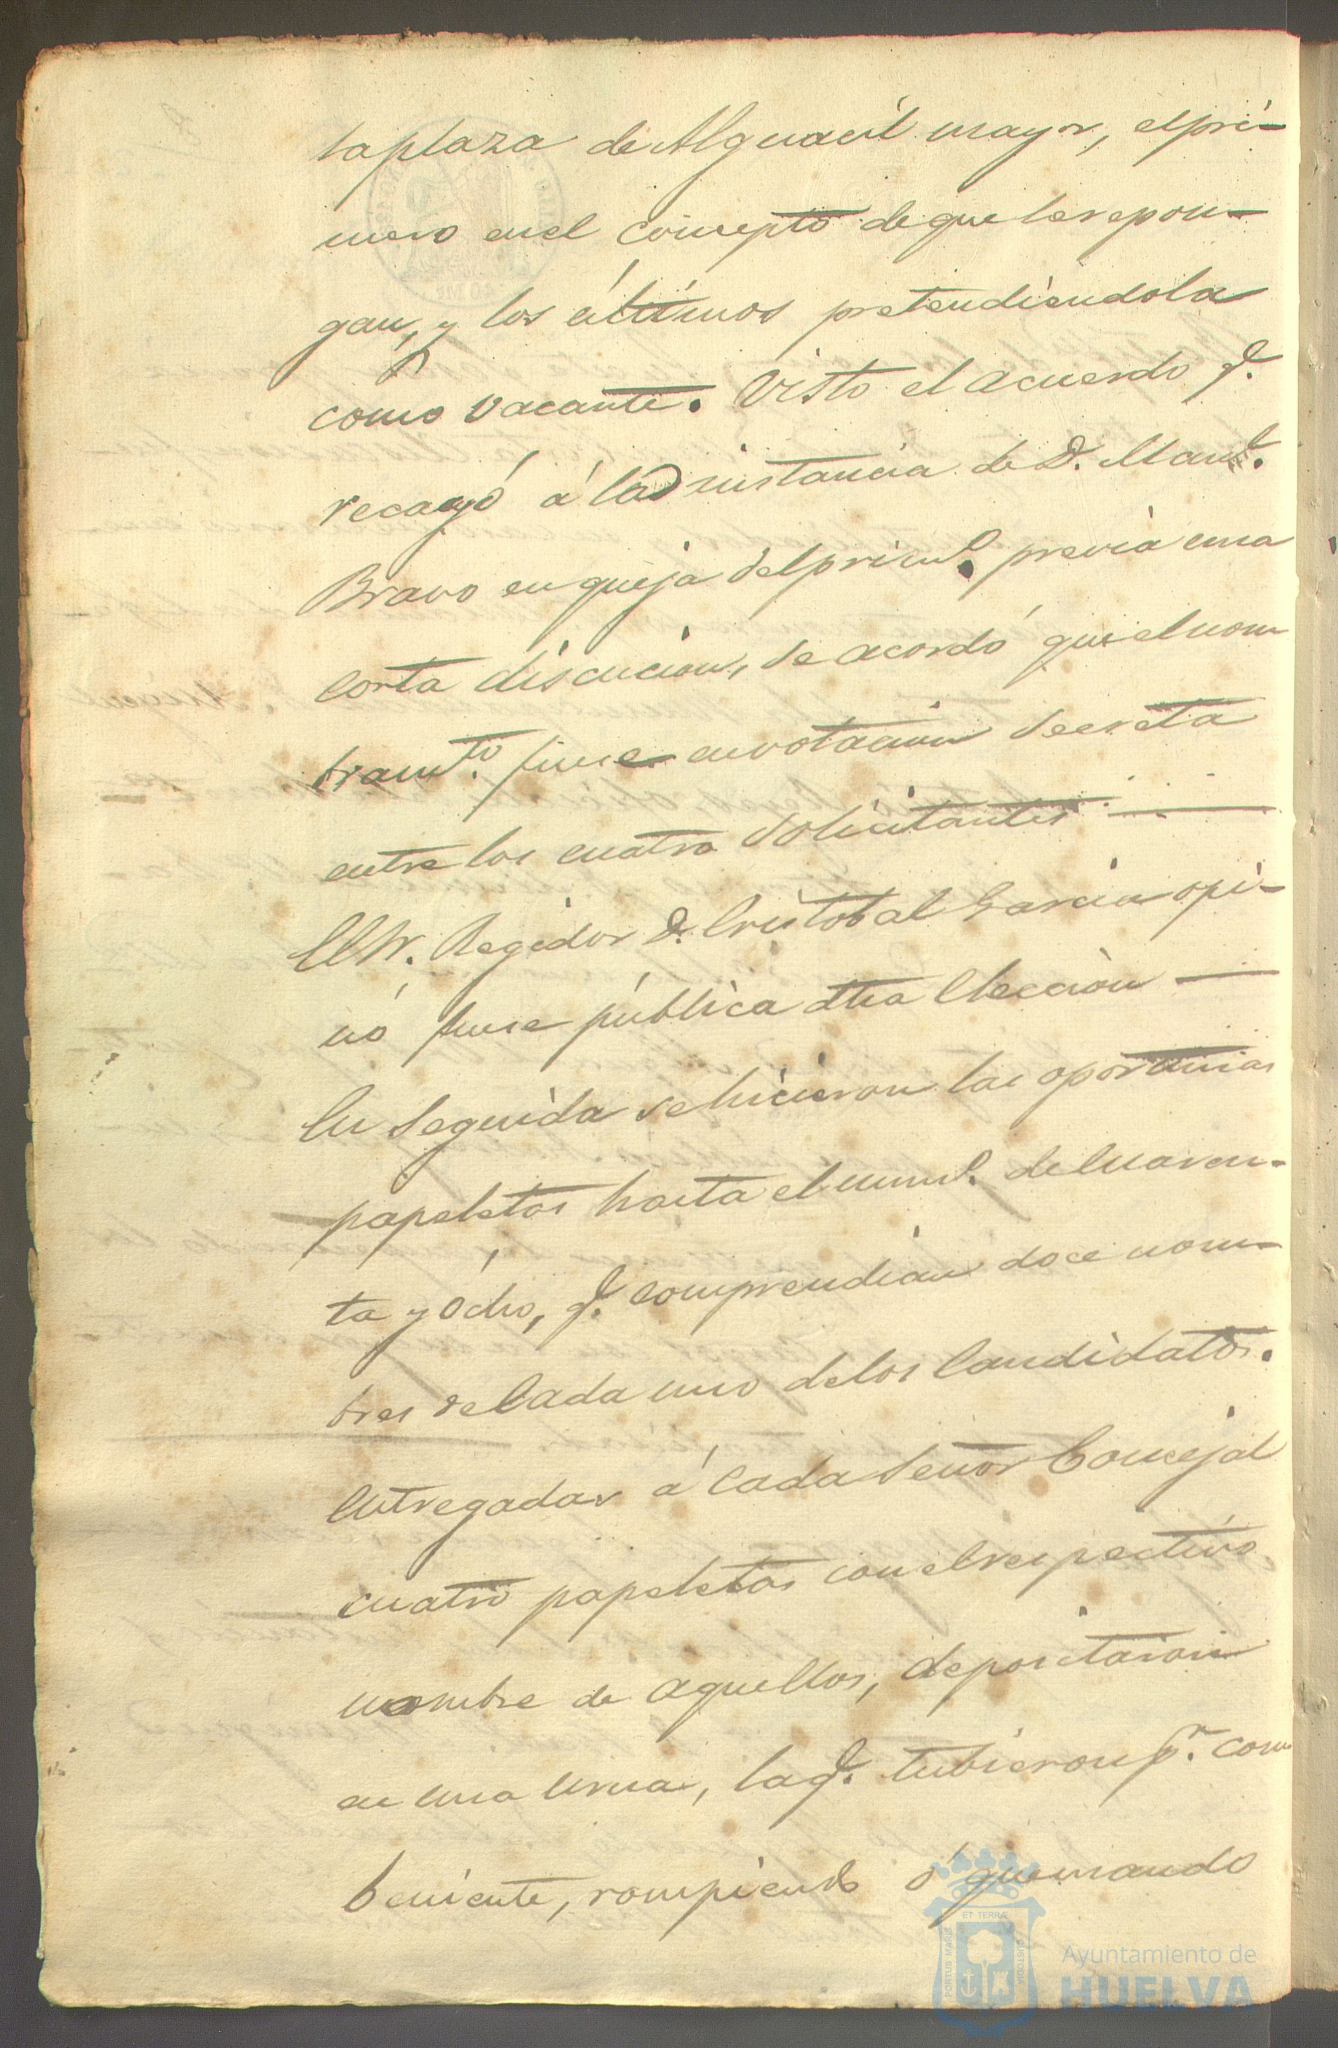 la plaza de Alguacil mayor, el pri-
mero en el concepto de que le repon-
gan, y los últimos pretendiendola
como vacante. Visto el acuerdo q.e
recayó á la instancia de D. Man.l
Bravo en queja del prim.o previa una
corta discucion, se acordó que el nom
bram.to fuese en votacion secreta
entre los cuatro solicitantes
El Sr. Regidor D. Cristobal Garcia opi-
nó fuese pública dha eleccion
En seguida se hicieron las oportunas
papeletas hasta el num.o de cuaren-
ta y ócho, q.e comprendian doce nom-
bres de cada uno de los Candidatos.
Entregadas á cada Señor Concejal
cuatro papeletas con el respectivo
nombre de aquellos, depositaron
en una urna, la q.e tubieron p.r con
beniente, rompiendo ó quemando
Ayuntamiento de
HUELVA
PORTUS MARIS
ET TERRÆ
CUSTODIA